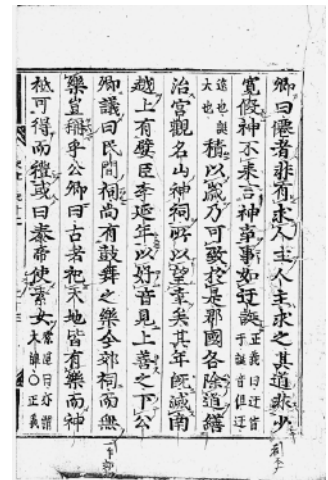 卿曰僊者非有求人主人主求之其道非少
寬假神不來言神事事如迂誕正義曰迂音于誕音但迂
遠也誕大也積以歲乃可致於是郡國各除道繕
治宮觀名山神祠所以望幸矣其年旣滅南
越上有嬖臣李延年以好音見上善之下公
卿議曰民間祠尚有鼓舞之樂今郊祠而無
樂豈稱乎公卿曰古者祀天地皆有樂而神
祇可得而禮或曰泰帝使素女索隱曰亦謂大諱○正義